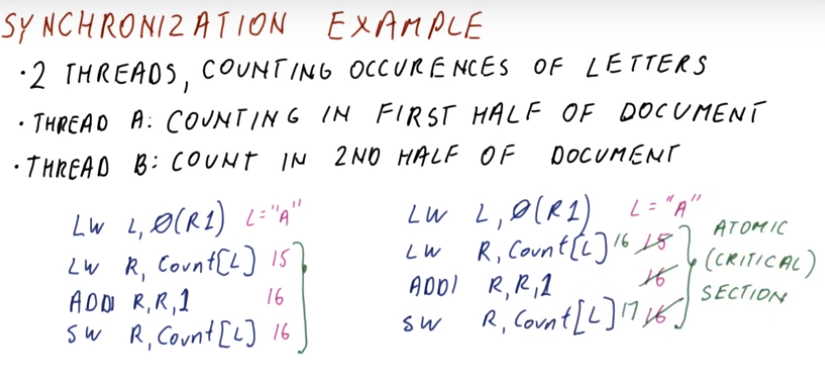 SYNCHRONIZATION EXAMPLE
• 2 THREADS, COUNTING OCCURENCES OF LETTERS
• THREAD A: COUNTING IN FIRST HALF OF DOCUMENT
• THREAD B: COUNT IN 2ND HALF OF DOCUMENT
LW L, Ø(R1) L="A"
LW R, Count[L] 15
ADDI R,R,1 16
SW R, Count[L] 16
LW L, Ø(R1) L="A"
LW R, Count[L] 16 15
ADDI R,R,1 16
SW R, Count[L] 17 16
ATOMIC
(CRITICAL)
SECTION